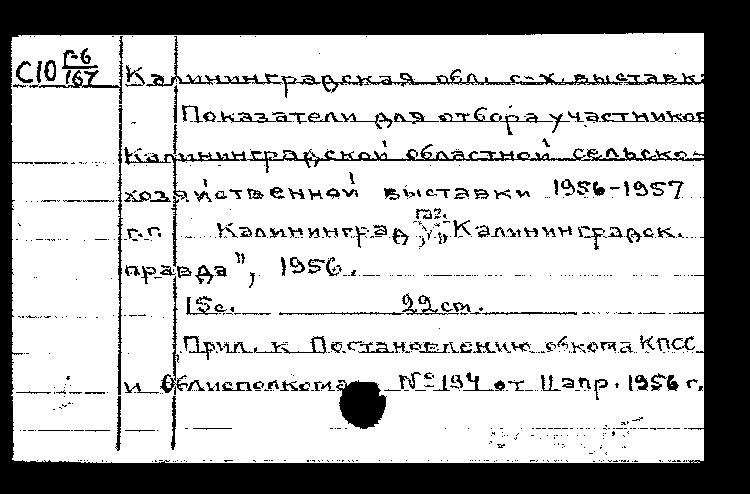 С10 Г-6/167
Калининградская обл. с-х. выставка
Показатели для отбора участников
Калининградской областной сельско-
хозяйственной выставки 1956-1957
г.г. Калининград, газ. „Калининградск.
правда", 1956.
15с. 22 см.
Прил. к Постановлению обкома КПСС
и Облисполкома № 194 от 11 апр. 1956 г.